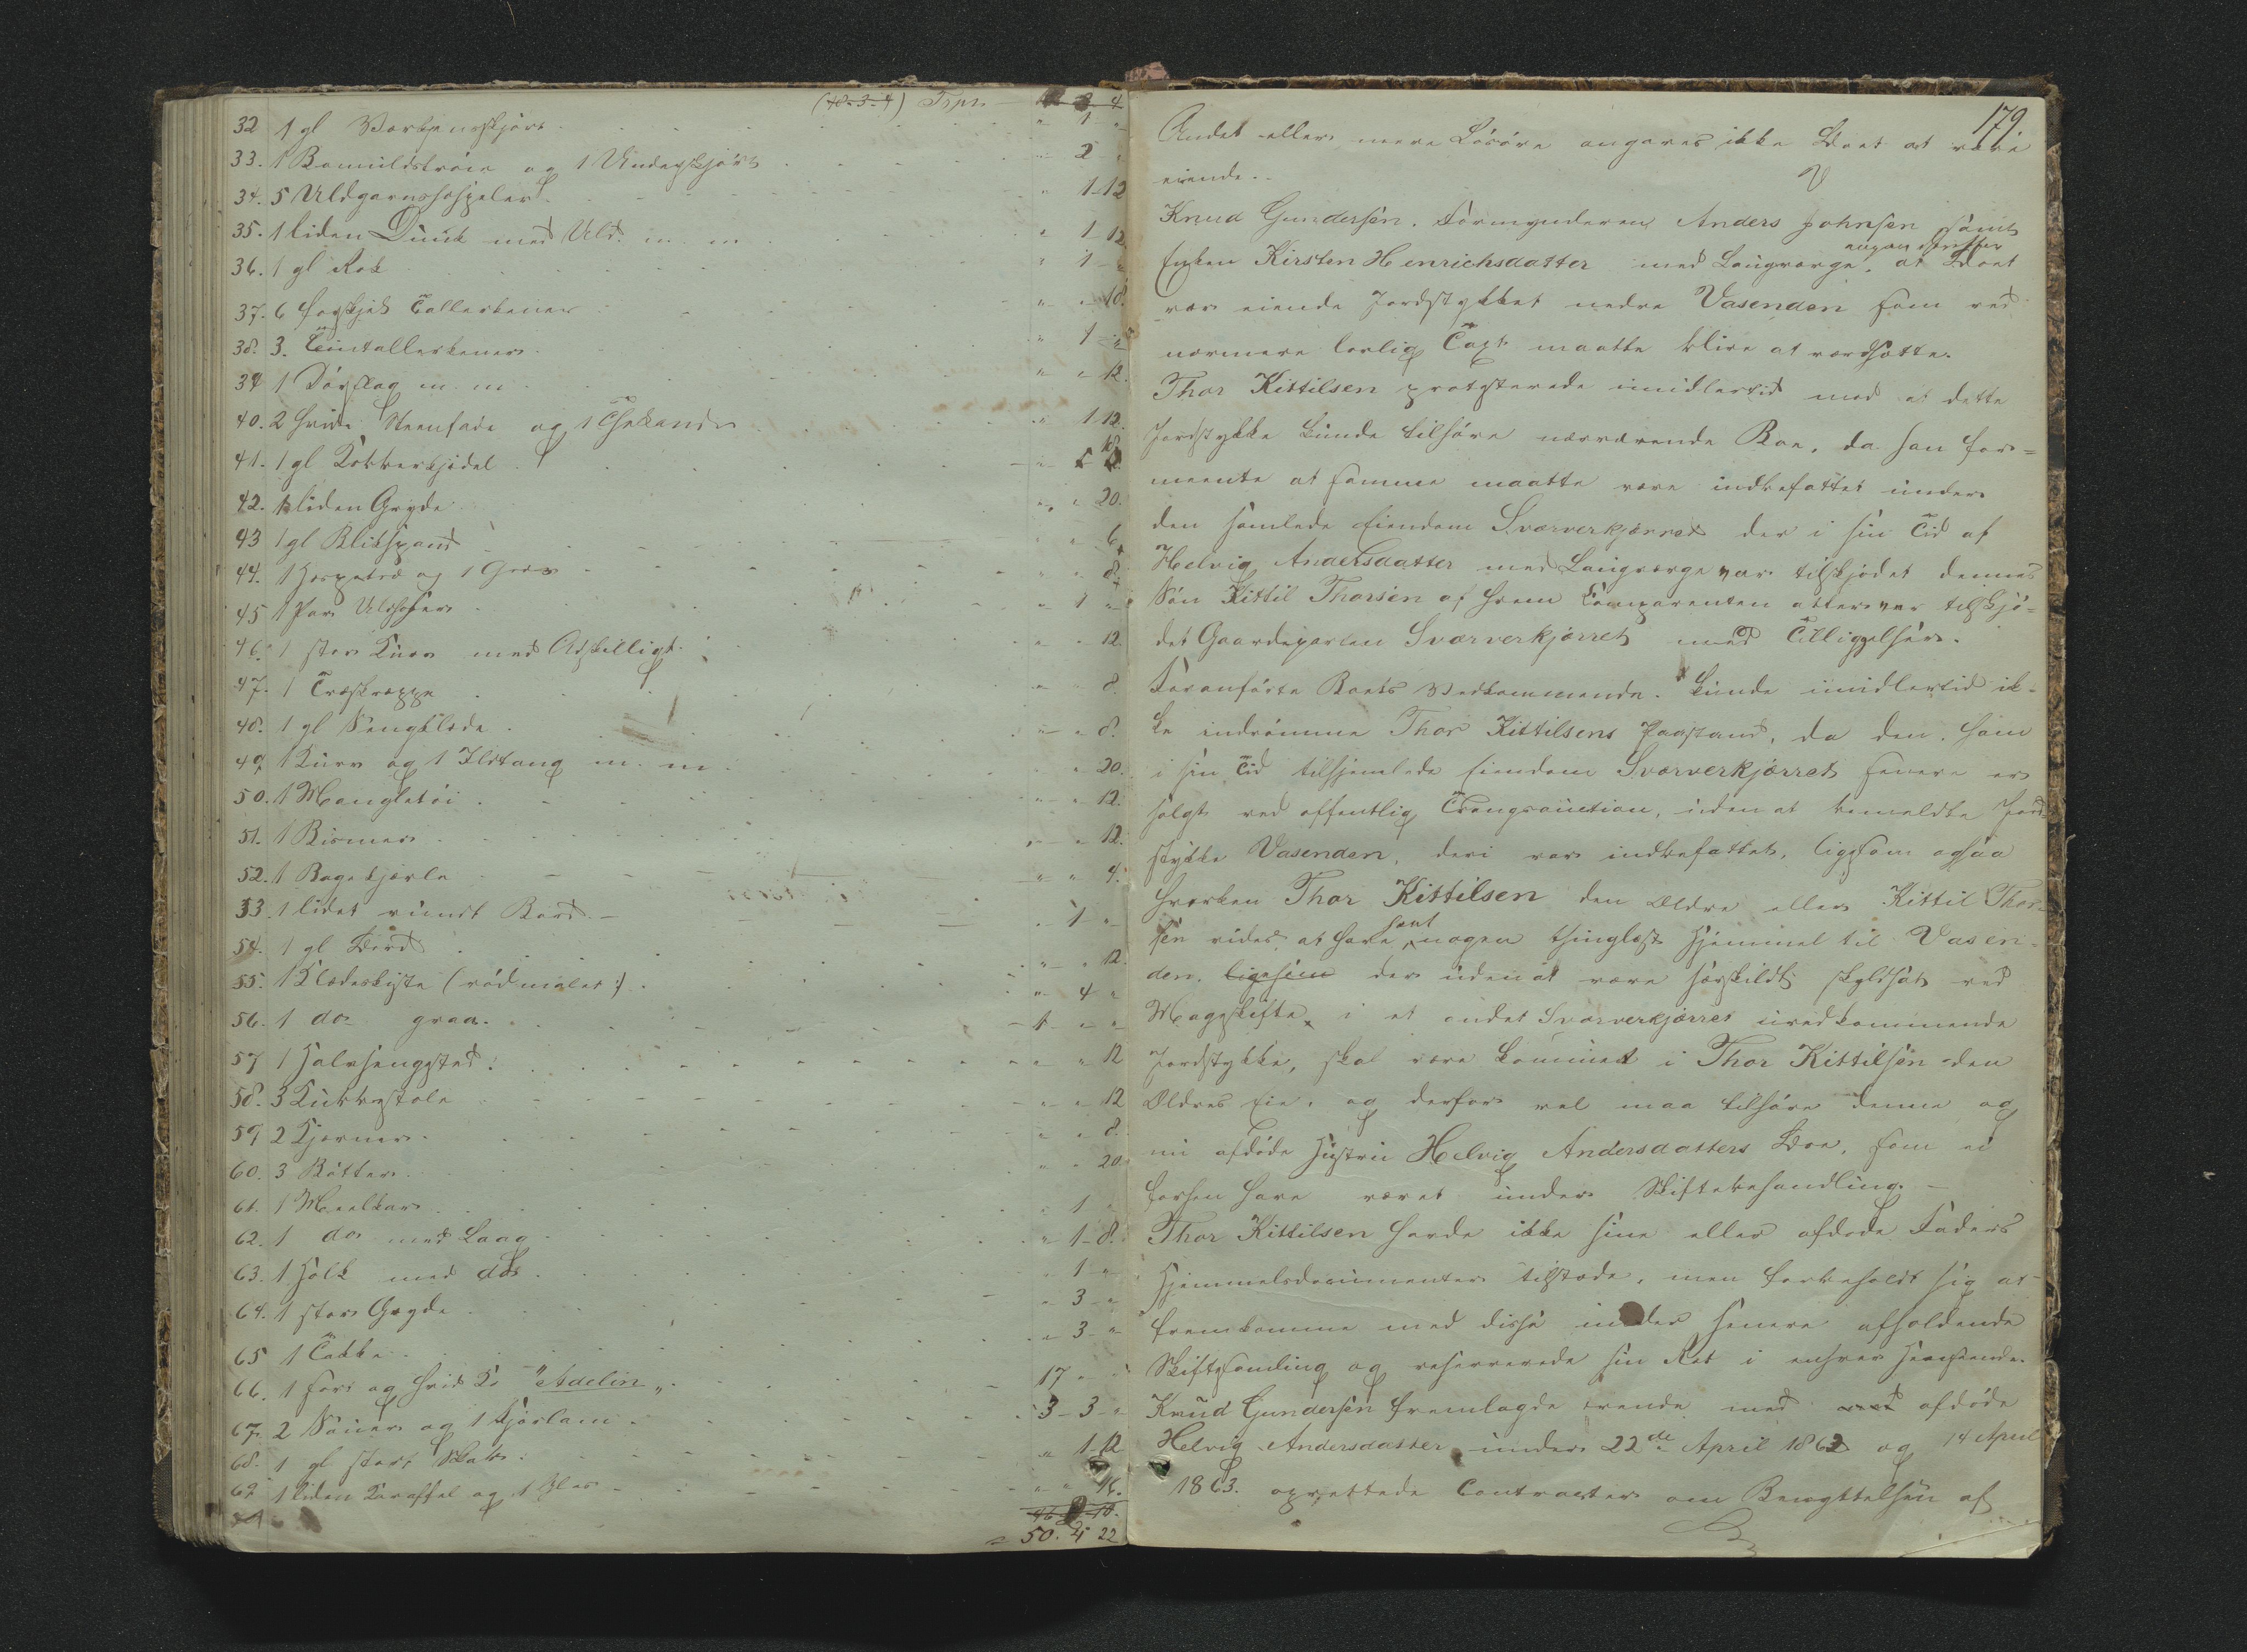 (48-3-4) Trpr.
32 1 gl Værkensskjørt " 1 "
33. 1 Bomuldstrøie og 1 Underskjørt " 2 "
34. 5 Uldgarnshespeler " 1-12
35. 1 liden Dunk med Uld. m. m " 1-12
36. 1 gl Rok " 1 "
37. 6 forskjel Tallerkener " " 18.
38. 3. Tintallerkener " 1 "
39 1 Dørslag m. m " " 12.
40. 2 hvide Steenfade og 1 Thekande " 1-12.
41. 1 gl Kobberkjedel
42. 1 liden Gryde " " 20.
43 1 gl Blikspand " " 6.
44. 1 Hespetræ og 1 " " 8.
45 1 Par Uldhoser " 1 "
46. 1 stor Kurv med Adskilligt " " 12.
47. 1 Træskreppe " " 8.
48. 1 gl Sengklæde " " 8.
49. 1 Kurv og 1 Ildtang m. m " " 20.
50. 1 Mangletøi " " 12.
51. 1 Bismer " " 12.
52. 1 Bagekjevle " " 4.
53. 1 lidet rundt Bord " 1 "
54. 1 gl Bord " " 12.
55. 1 Klædeskiste (rødmalet) " 4 "
56. 1 do graa. 1 " "
57 1 Halvsengsted " " 12
58. 3 Kubbestole " " 12
59. 2 Kjerner " " 8.
60. 3 Bøtter " " 20
61. 1 Meelkar " 1 "
62. 1 do med Laag " 1-8.
63. 1 Holk med do " 1 "
64. 1 stor Gryde " 3 "
65 1 Takke " 3 "
66. 1 sort og hvid Ko "Adelin" 17 " "
67. 2 Sauer og 1 Kjørlam 3-3-"
68. 1 gl stort Skab " 1-12
69 1 liden Karaffel og 1 Glas " " 16.
50. 4 22
179.
Andet eller mere Løsøre angaves ikke Boet at være
eiende.
Knud Gundersen, Formynderen Anders Johnsen samt
Enken Kirsten Henrichsdatter med Laugværge, at Boet
var eiende Jordstykket nedre Vasenden som ved
nærmere lovlig Taxt maatte blive at værdsætte.
Thor Kittilsen protesterede imidlertid mod at dette
Jordstykke kunde tilhøre nærværende Boe, da han for=
meente at samme maatte være indbefattet under
den samlede Eiendom Sværverkjærret der i sin Tid af
Helvig Andersdatter med Laugværge var tilskjødet dennes
Søn Kittil Thorsen af hvem Comparenten atter var tilskjø=
det Gaardeparten Sværverkjærret med Tilliggelser.
Foranførte Boets Vedkommende kunde imidlertid ik=
ke indrømme Thor Kittilsens Paastand, da den, som
i sin Tid tilhjemlede Eiendom Sværverkjærret senere er
solgt ved offentlig Tvangsauction, uden at bemeldte Jord=
stykke Vasenden, deri var indbefattet, ligesom ogsaa
hverken Thor Kittilsen den Ældre eller Kittil Thor=
sen vides at have havt nogen thinglæst Hjemmel til Vasen=
den, ligesom der uden at være særskildt skyldsat ved
Mageskifte, i et andet Sværverkjærret uvedkommende
Jordstykke, skal være kommet i Thor Kittilsen den
Ældres Eie, og derfor vel maa tilhøre denne og
nu afdøde Hustru Helvig Andersdatters Boe, som ei
forhen have været under Skiftebehandling. —
Thor Kittilsen havde ikke sine eller afdøde Faders
Hjemmelsdocumenter tilstede, men forbeholdt sig at
fremkomme med disse under senere afholdende
Skiftesamling og reserverede sin Ret i enhver Henseende.
Knud Gundersen fremlagde trende med afdøde
Helvig Andersdatter under 22de April 1862 og 14 April
1863. oprettede Contracter om Benyttelsen af